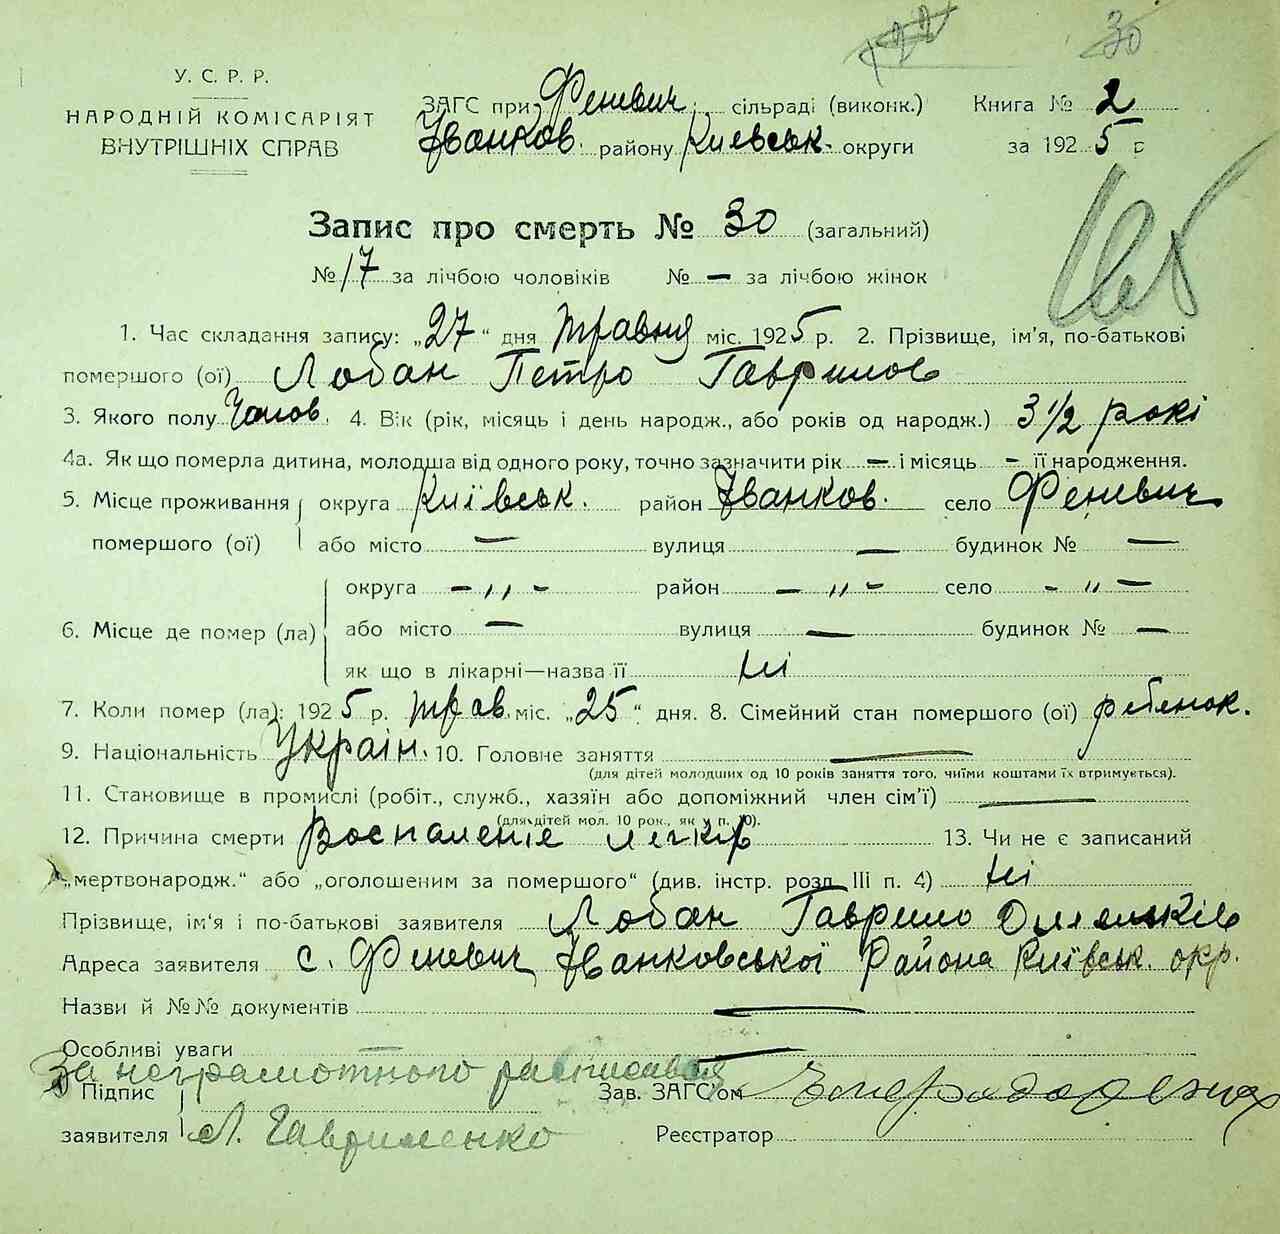 30
У. С. Р. Р.
НАРОДНІЙ КОМІСАРІЯТ
ВНУТРІШНІХ СПРАВ
ЗАГС при Феневич. сільраді (виконк.) Книга № 2
Іванков. району Киевськ. округи за 1925 г
Запис про смерть № 30 (загальний)
№ 17 за лічбою чоловіків № — за лічбою жінок
1. Час складання запису: „27“ дня травня міс. 1925 р. 2. Прізвище, ім'я, по-батькові
помершого (ої) Лобан Петро Гаврилов
3. Якого полу Чолов. 4. Вік (рік, місяць і день народж., або років од народж.) 3 1/2 рокі
4а. Як що померла дитина, молодша від одного року, точно зазначити рік — і місяць - її народження.
5. Місце проживання округа Київськ. район Іванков. село Феневич
помершого (ої) або місто — вулиця — будинок № —
округа - " - район - " - село - " -
6. Місце де помер (ла) або місто — вулиця — будинок № —
як що в лікарні—назва її ні
7. Коли помер (ла): 1925 р. трав. міс. „25“ дня. 8. Сімейний стан помершого (ої) ребенок.
9. Національність Україн. 10. Головне заняття —
(для дітей молодших од 10 років заняття того, чиїми коштами їх втримується).
11. Становище в промислі (робіт., служб., хазяїн або допоміжний член сім'ї) —
(для дітей мол. 10 рок., як у п. 10).
12. Причина смерти Воспаленіе легкір 13. Чи не є записаний
„мертвонародж.“ або „оголошеним за помершого“ (див. інстр. розд. III п. 4) ні
Прізвище, ім'я і по-батькові заявителя Лобан Гаврило
Адреса заявителя с. Феневич Іванковської Района Київськ. окр.
Назви й №№ документів —
Особливі уваги —
За неграмотного расписався
Підпис Зав. ЗАГС'ом
заявителя Л. Гавриленко Реєстратор